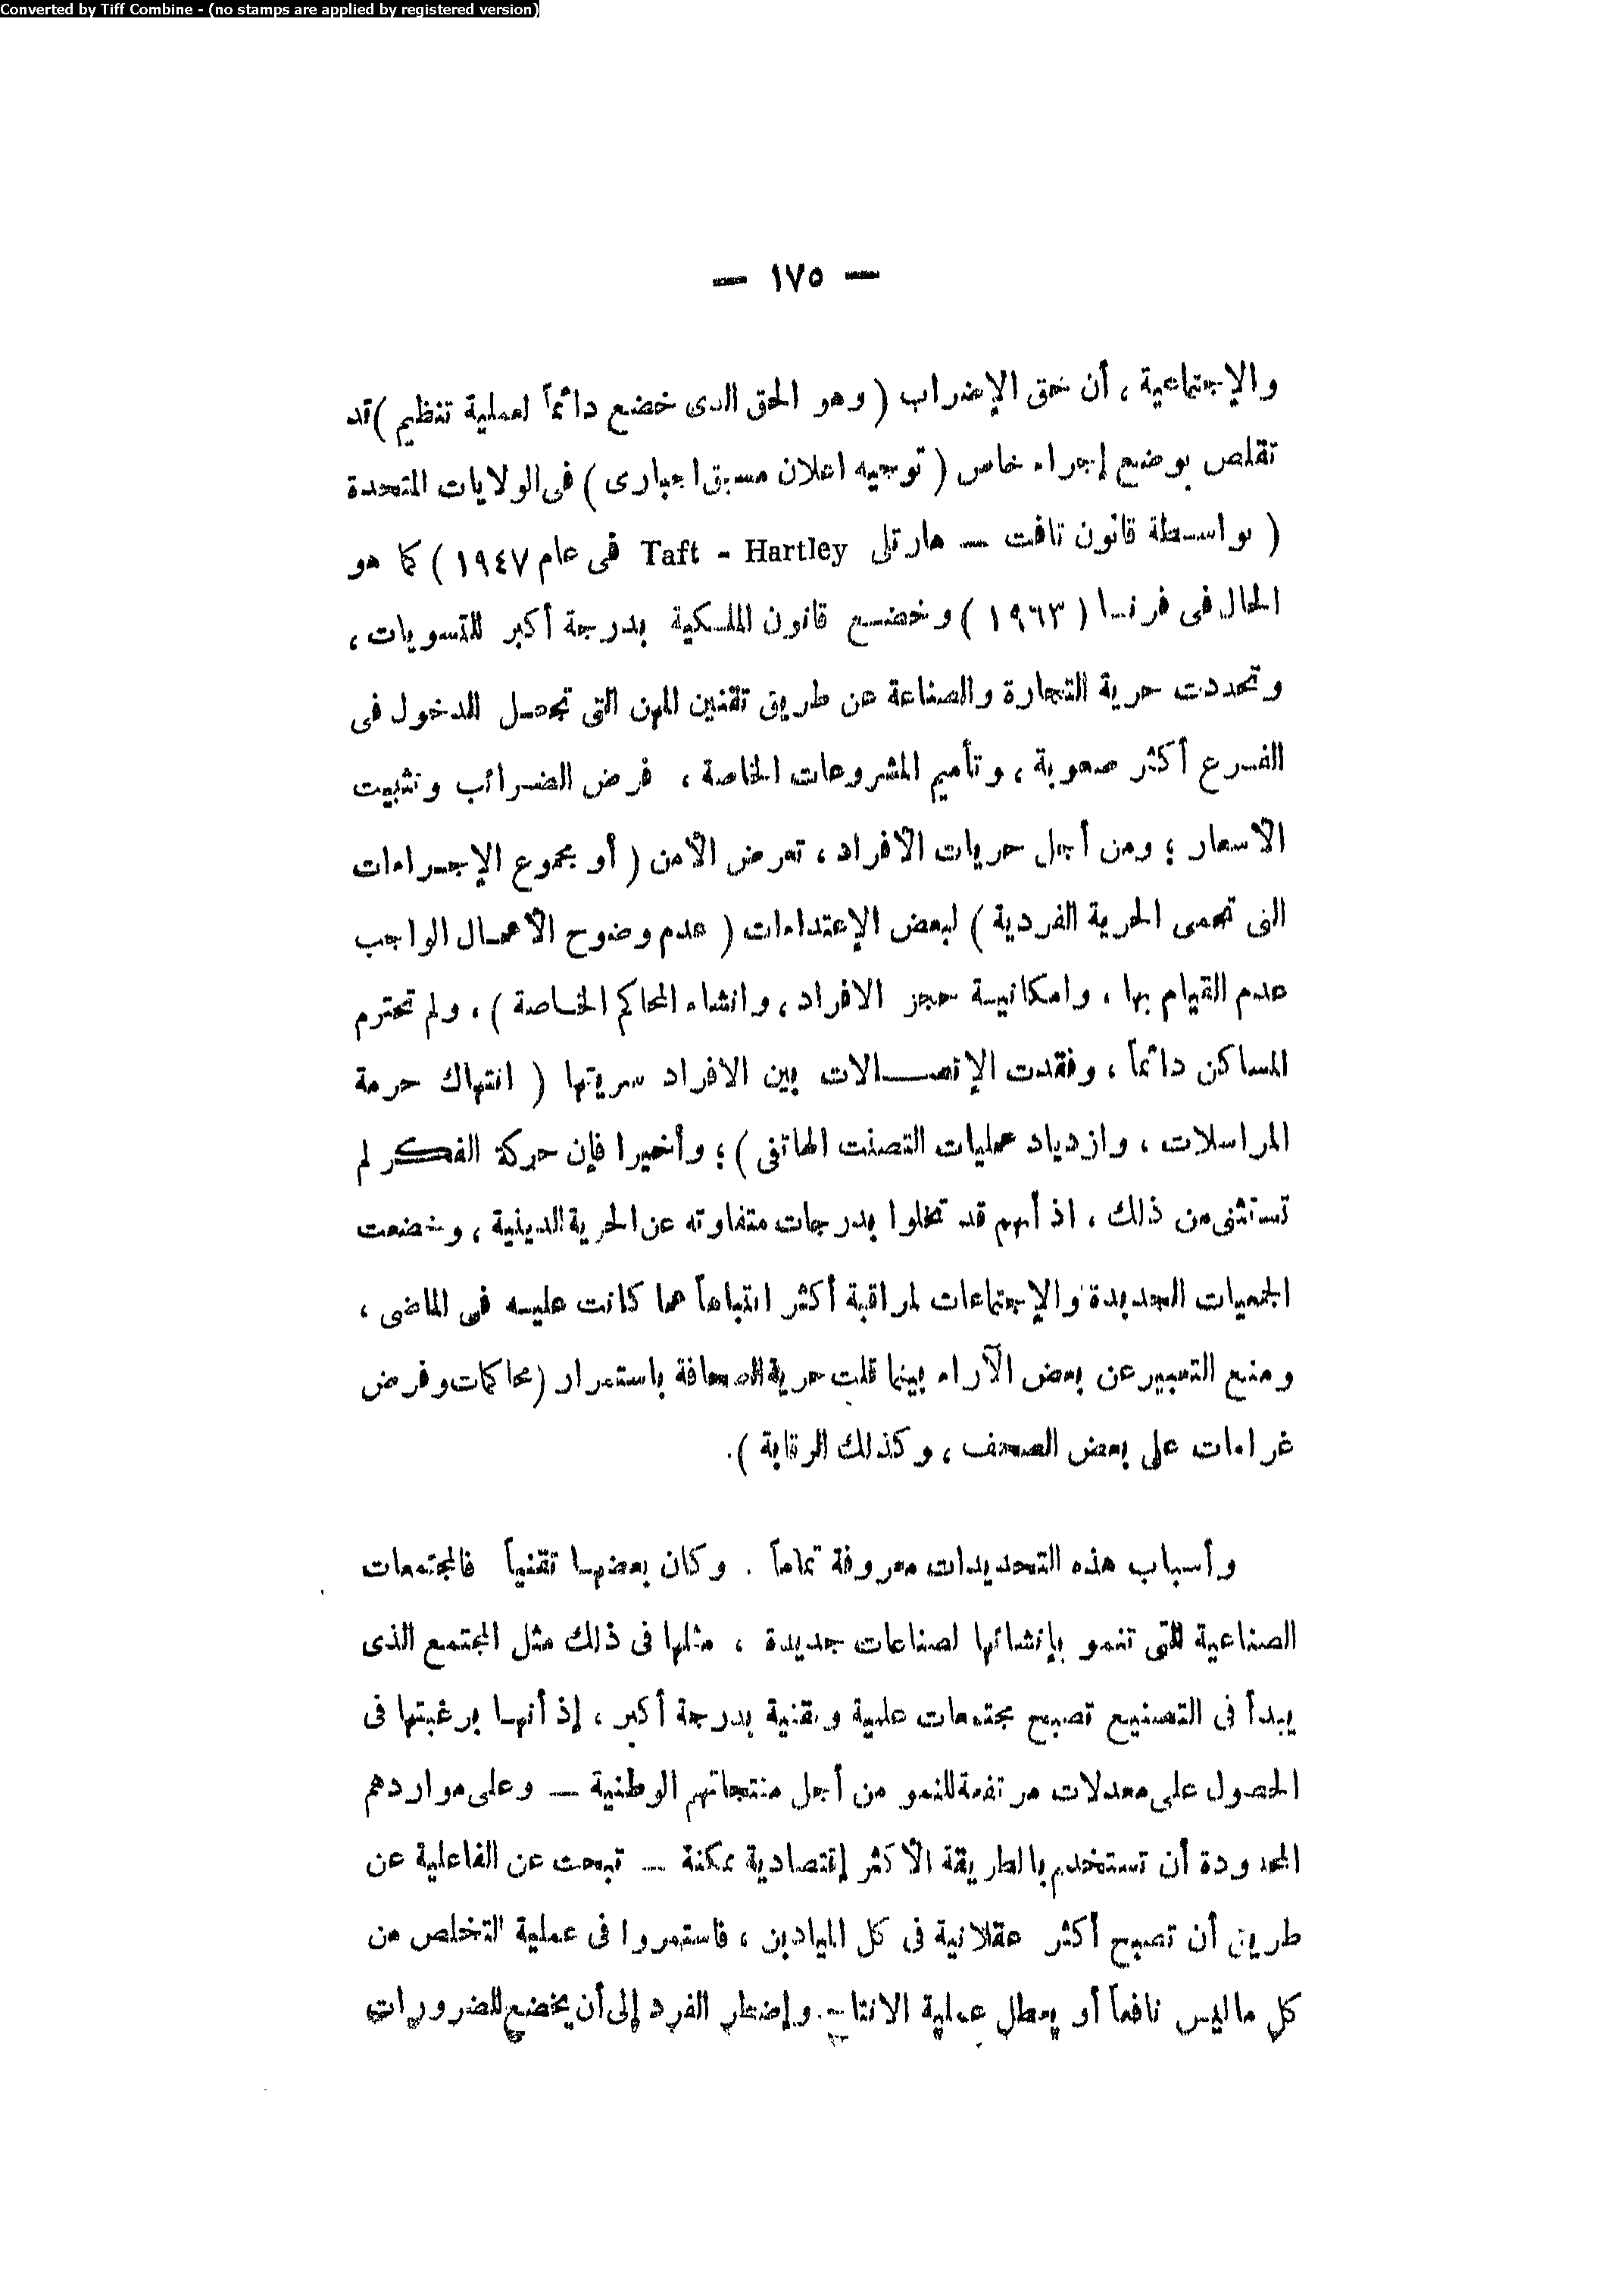 Converted by Tiff Combine - (no stamps are applied by registered version)
— ١٧٥ —
والإجتماعية ، أن حق الإضراب ( وهو الحق الذى خضع دائماً لعملية تنظيم ) قد
تقلص بوضع إجراء خاص ( توجيه اعلان مسبق اجبارى ) فى الولايات المتحدة
( بواسطة قانون تافت — هارتلى Taft - Hartley فى عام ١٩٤٧ ) كما هو
الحال فى فرنسا ( ١٩٦٣ ) وخضع قانون الملكية بدرجة أكبر للتسويات ،
وتحددت حرية التجارة والصناعة عن طريق تقنين المهن التى تجعل الدخول فى
الفرع أكثر صعوبة ، وتأميم المشروعات الخاصة ، فرض الضرائب وتثبيت
الأسعار ؛ ومن أجل حريات الأفراد ، تعرض الأمن ( أو مجموع الإجراءات
التى تحمى الحرية الفردية ) لبعض الإعتداءات ( عدم وضوح الأعمال الواجب
عدم القيام بها ، وامكانية حجز الافراد ، وانشاء المحاكم الخاصة ) ، ولم تحترم
المساكن دائماً ، وفقدت الإتصالات بين الافراد سريتها ( انتهاك حرمة
المراسلات ، وازدياد عمليات التصنت الهاتفى ) ؛ وأخيرا فإن حركة الفكر لم
تستثنى من ذلك ، اذ أنهم قد تخلوا بدرجات متفاوته عن الحرية الدينية ، وخضعت
الجمعيات الجديدة والإجتماعات لمراقبة أكثر انتباهاً عما كانت عليه فى الماضى ،
ومنع التعبير عن بعض الآراء بينما قلت حرية الصحافة باستمرار ( محاكمات وفرض
غرامات على بعض الصحف ، وكذلك الرقابة ) .
وأسباب هذه التحديدات معروفة تماماً . وكان بعضها تقنياً فالمجتمعات
الصناعية التى تنمو بإنشائها لصناعات جديدة ، مثلها فى ذلك مثل المجتمع الذى
يبدأ فى التصنيع تصبح مجتمعات علمية وتقنية بدرجة أكبر ، إذ أنها برغبتها فى
الحصول على معدلات مرتفعة للنمو من أجل منتجاتهم الوطنية — وعلى مواردهم
المحدودة أن تستخدم بالطريقة الأكثر إقتصادية ممكنة — تبحث عن الفاعلية عن
طريق أن تصبح أكثر عقلانية فى كل الميادين ، فاستمروا فى عملية التخلص من
كل ما ليس نافعاً أو يعطل عملية الانتاج . وإضطر الفرد إلى أن يخضع للضرورات